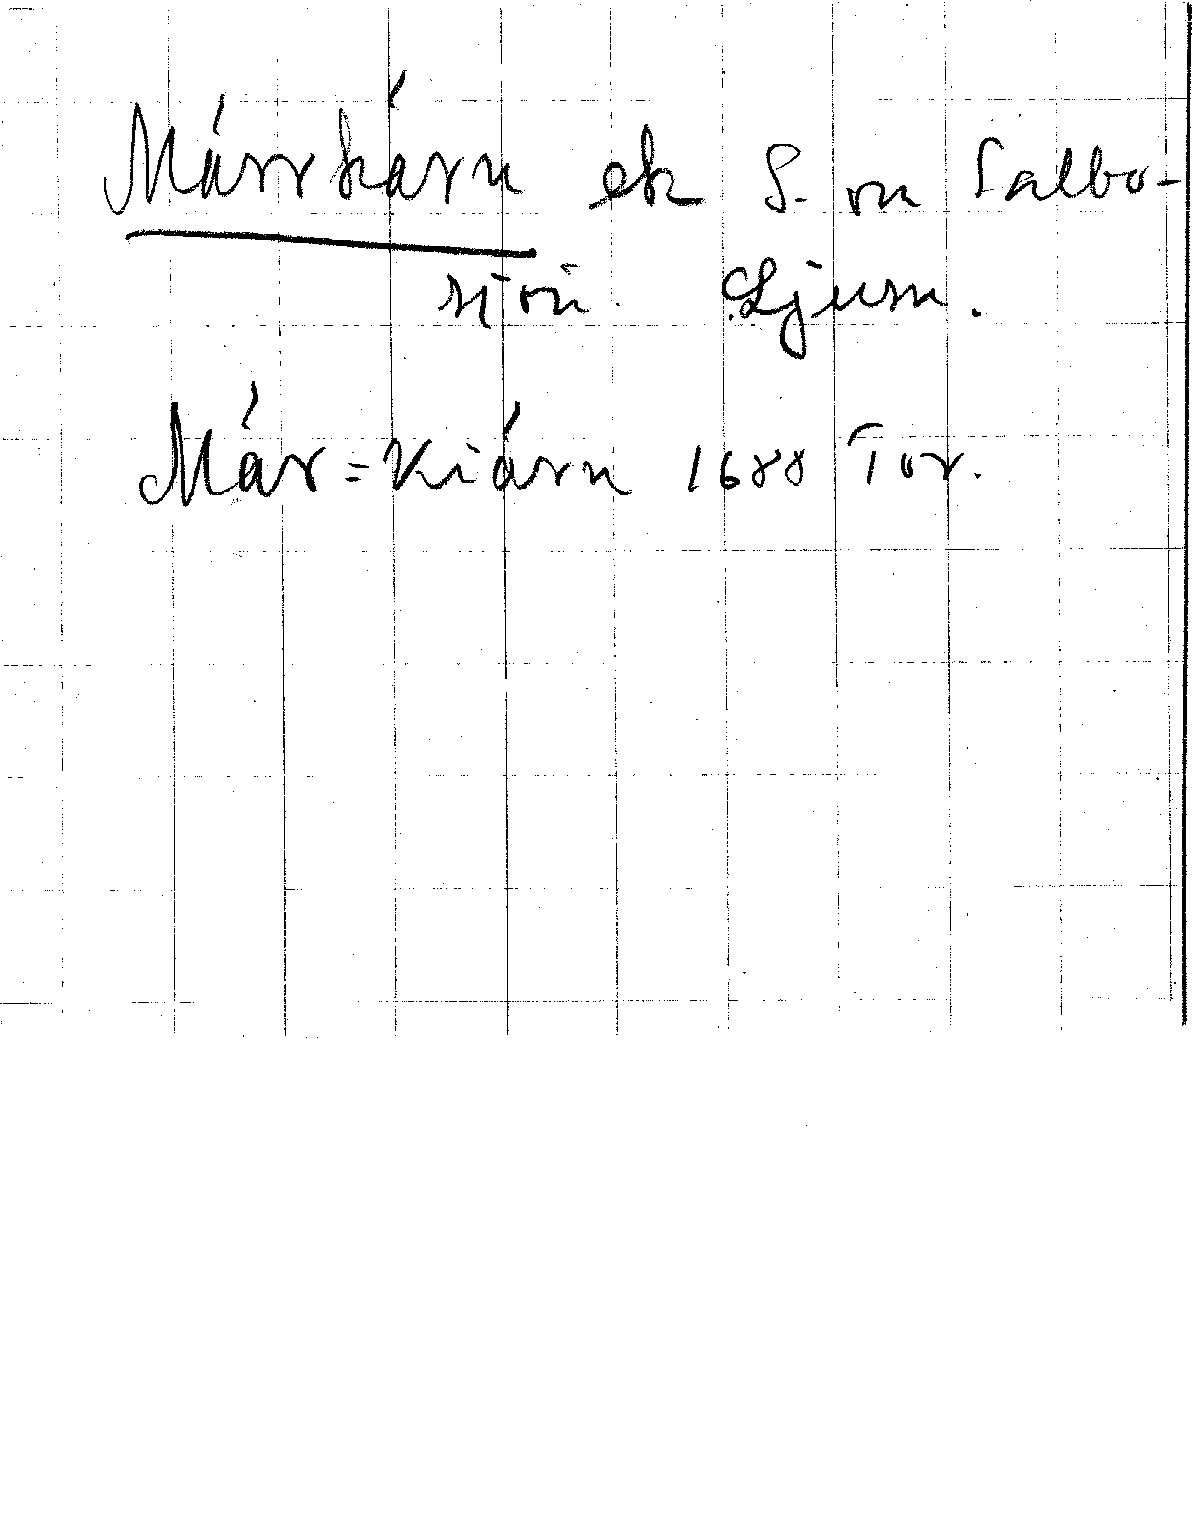 Märrkärn ek S. om Salbo-
sjön. Ljusn.
Mär=Kiärn 1688 Tor.